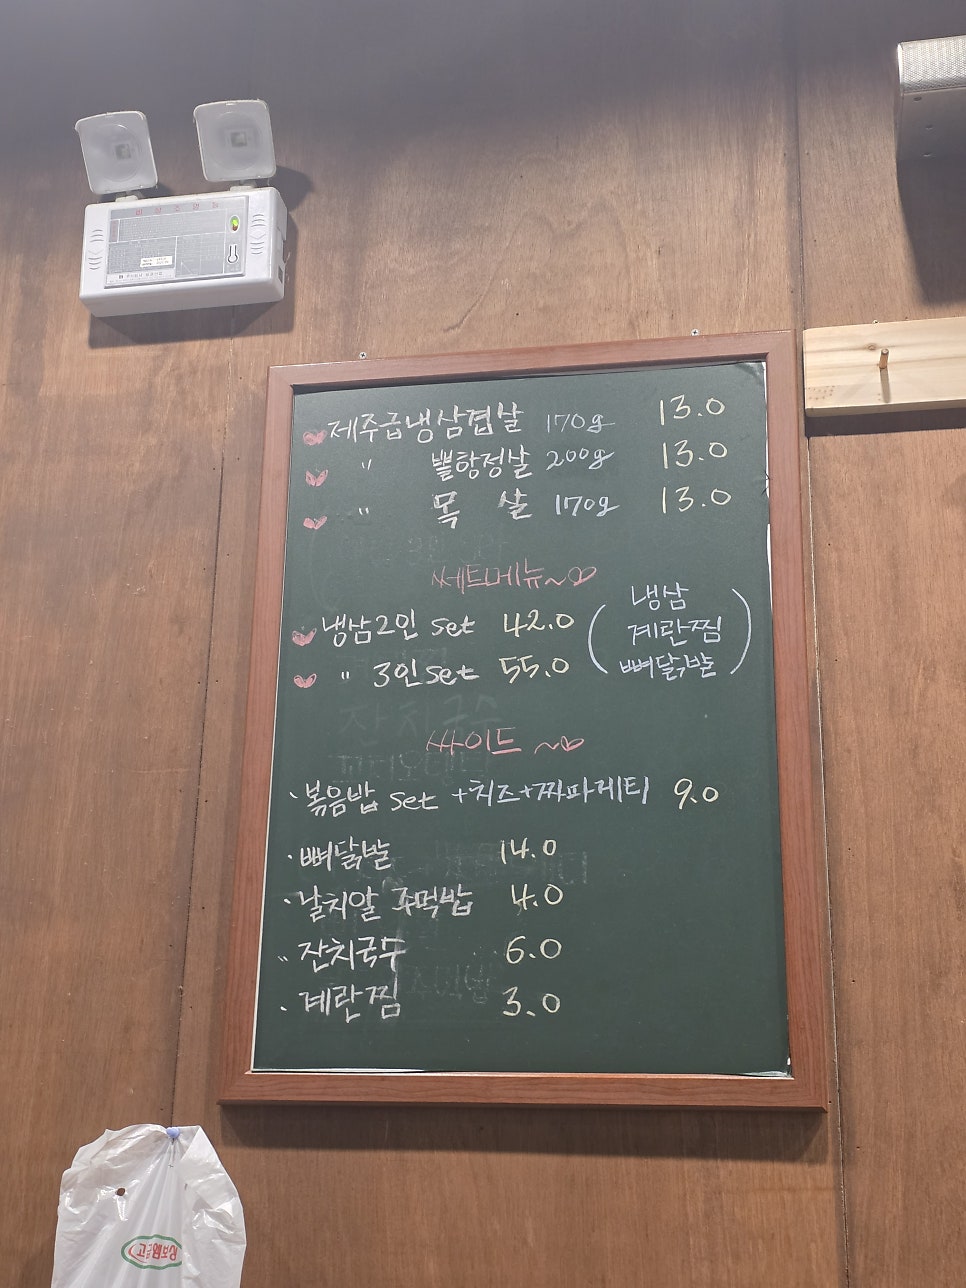 비상조명등
제주급냉삼겹살 170g 13.0
" 뽈항정살 200g 13.0
" 목 살 170g 13.0
쎄트메뉴~
냉삼2인 set 42.0
" 3인 set 55.0
(냉삼
계란찜
뼈닭발)
싸이드~
·볶음밥 set +치즈+짜파게티 9.0
·뼈닭발 14.0
·날치알 주먹밥 4.0
·잔치국수 6.0
·계란찜 3.0